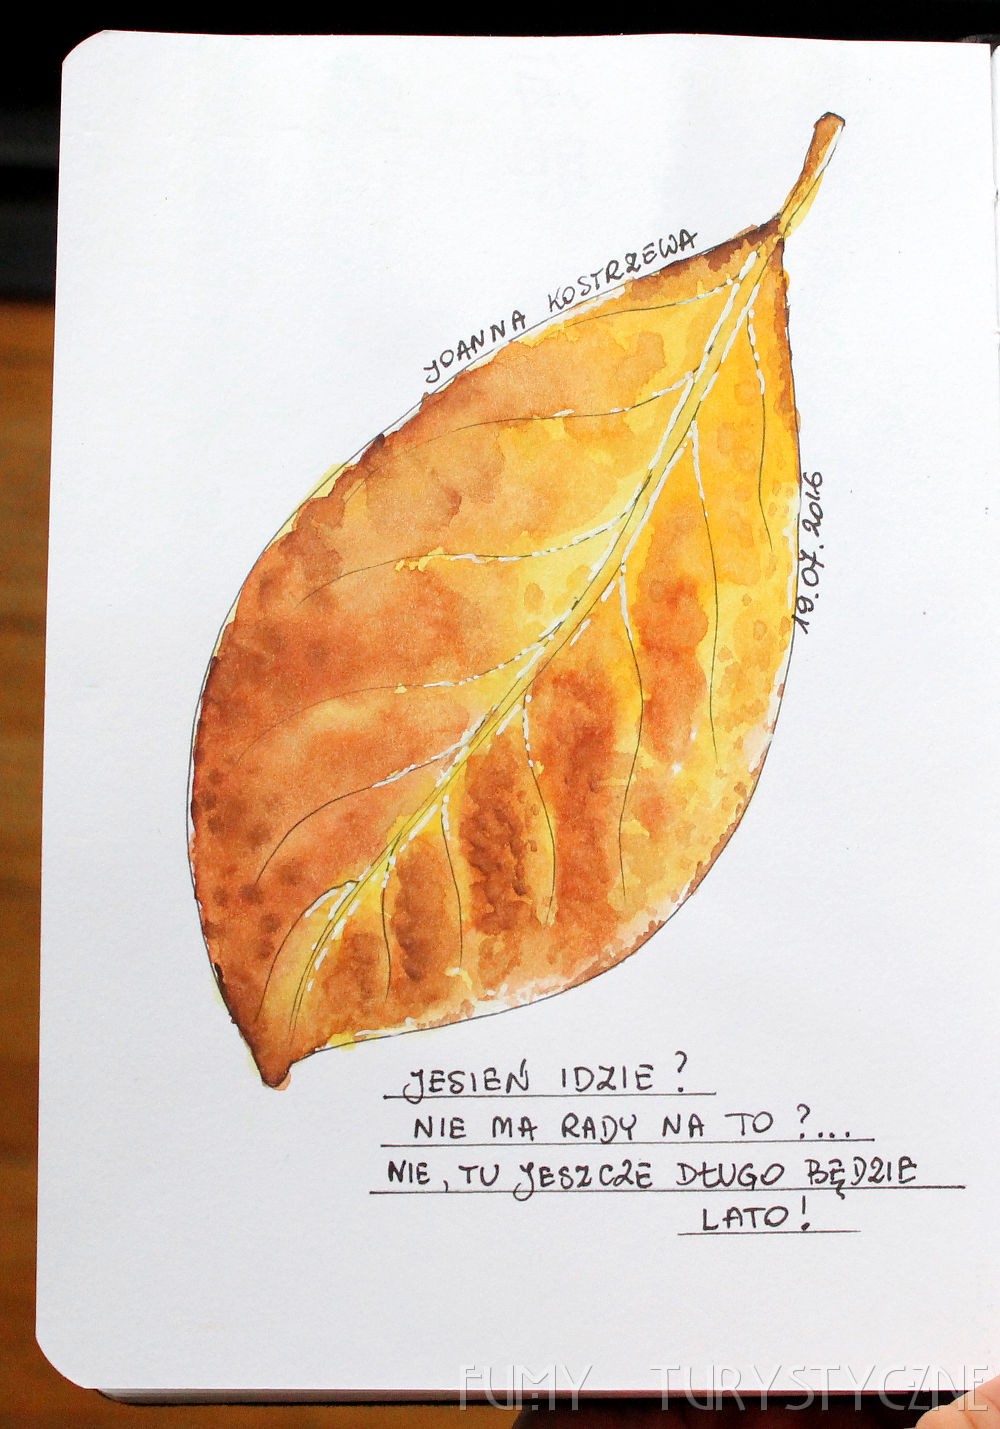 JOANNA KOSTRZEWA
19.07.2016
JESIEŃ IDZIE?
NIE MA RADY NA TO?...
NIE, TU JESZCZE DŁUGO BĘDZIE
LATO!
FUMY TURYSTYCZNE